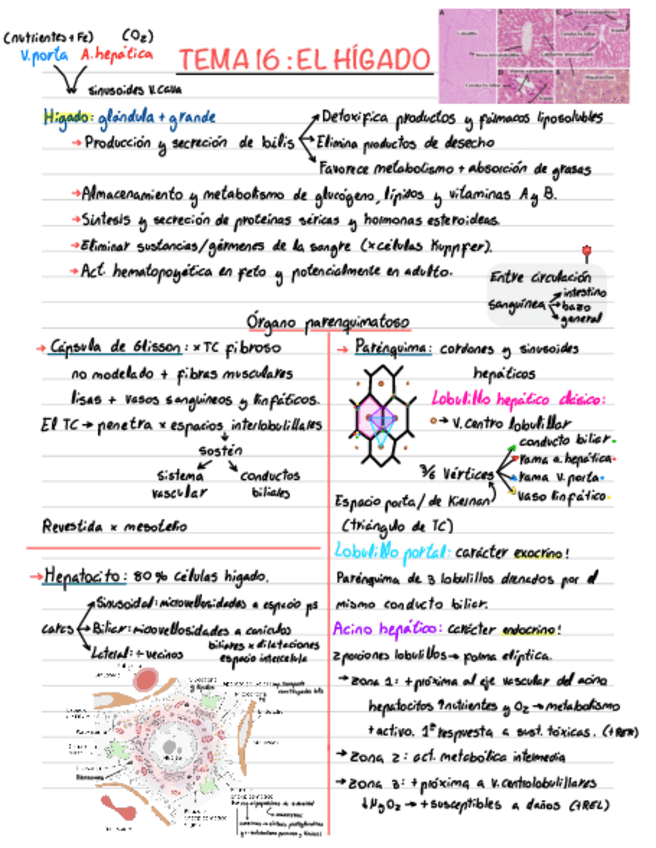 (nutrientes + Fe) (O₂)
V.porta A.hepática
sinusoides V.cava
TEMA 16: EL HÍGADO
Hígado: glándula + grande
→ Producción y secreción de bilis
Detoxifica productos y fármacos liposolubles
Elimina productos de desecho
Favorece metabolismo + absorción de grasas
→ Almacenamiento y metabolismo de glucógeno, lípidos y vitaminas A y B.
→ Síntesis y secreción de proteínas séricas y hormonas esteroideas.
→ Eliminar sustancias/gérmenes de la sangre (x células Kuppfer).
→ Act. hematopoyética en feto y potencialmente en adulto.
Entre circulación
sanguínea
intestino
bazo
general
Órgano parenquimatoso
→ Cápsula de Glisson: x TC fibroso
no modelado + fibras musculares
lisas + vasos sanguíneos y linfáticos.
El TC → penetra x espacios interlobulillares
sostén
sistema vascular
conductos biliares
Revestida x mesotelio
→ Hepatocito: 80% células hígado.
caras
Sinusoidal: microvellosidades a espacio ps
Biliar: microvellosidades a canículos
biliares x dilataciones
espacio intercelula
Lateral: + vecinos
→ Parénquima: cordones y sinusoides
hepáticos
Lobulillo hepático clásico:
→ V.centro lobulillar
3/6 Vértices
conducto biliar
rama a.hepática
rama v.porta
vaso linfático
Espacio porta/de Kiernan
(triángulo de TC)
Lobulillo portal: carácter exocrino!
Parénquima de 3 lobulillos drenados por el
mismo conducto biliar.
Acino hepático: carácter endocrino!
2 porciones lobulillos → forma elíptica.
→ zona 1: + próxima al eje vascular del acino
hepatocitos ↑nutrientes y O₂ → metabolismo
+ activo. 1ª respuesta a sust. tóxicas. (+RER)
→ zona 2: act. metabólica intermedia
→ zona 3: + próxima a v.centrolobulillares
↓N y O₂ → + susceptibles a daños (+REL)